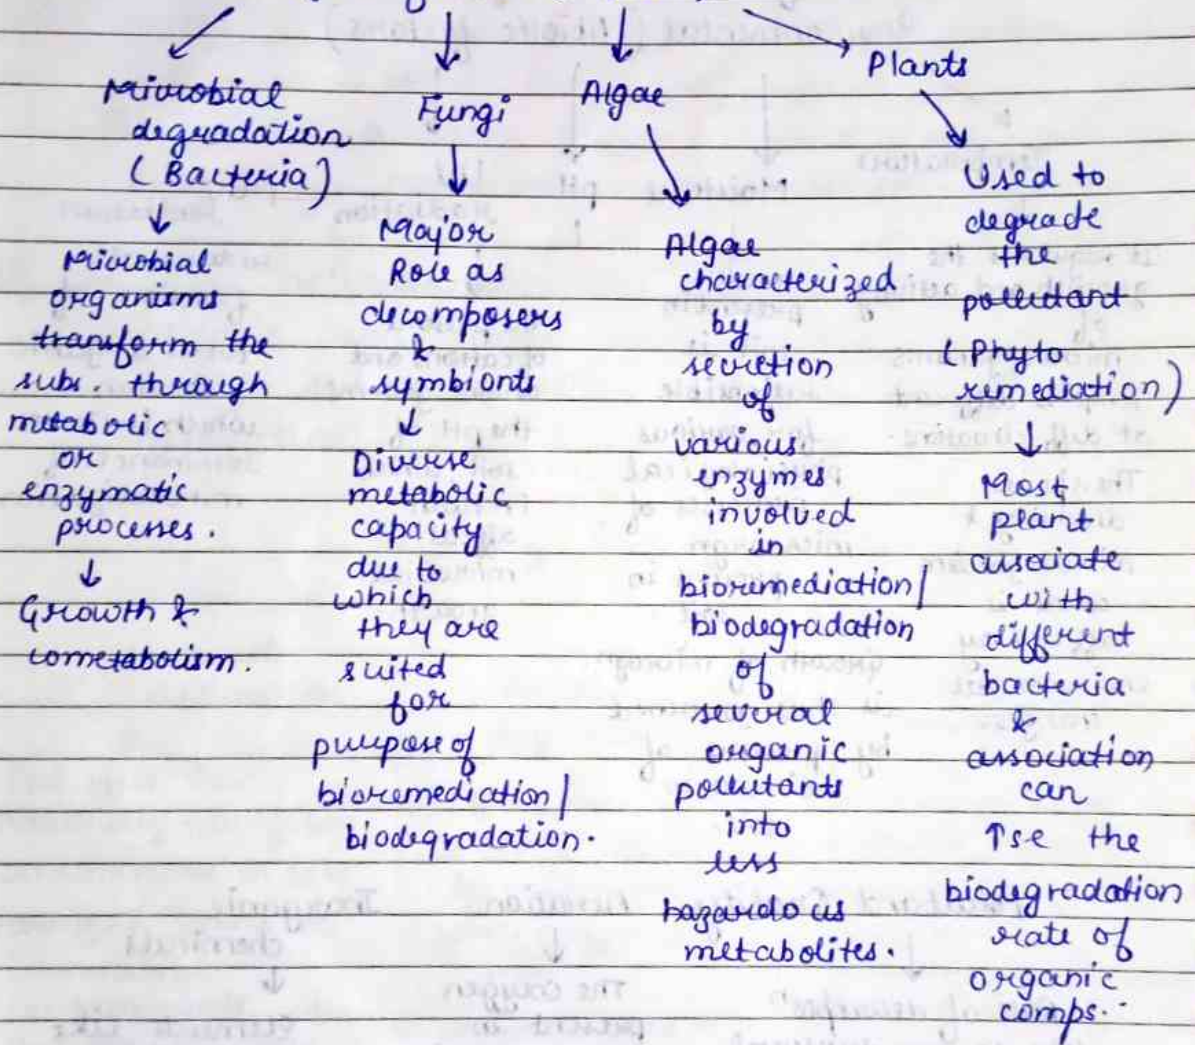 Microbial
degradation
(Bacteria)
↓
Microbial
organisms
transform the
subs. through
metabolic
or
enzymatic
processes.
↓
Growth &
cometabolism.
Fungi
↓
Major
Role as
decomposers
&
symbionts
↓
Diverse
metabolic
capacity
due to
which
they are
suited
for
purpose of
bioremediation/
biodegradation.
Algae
Algae
characterized
by
secretion
of
various
enzymes
involved
in
bioremediation/
biodegradation
of
several
organic
pollutants
into
less
hazardous
metabolites.
Plants
Used to
degrade
the
pollutant
(Phyto
remediation)
↓
Most
plant
associate
with
different
bacteria
&
association
can
↑se the
biodegradation
rate of
organic
comps.